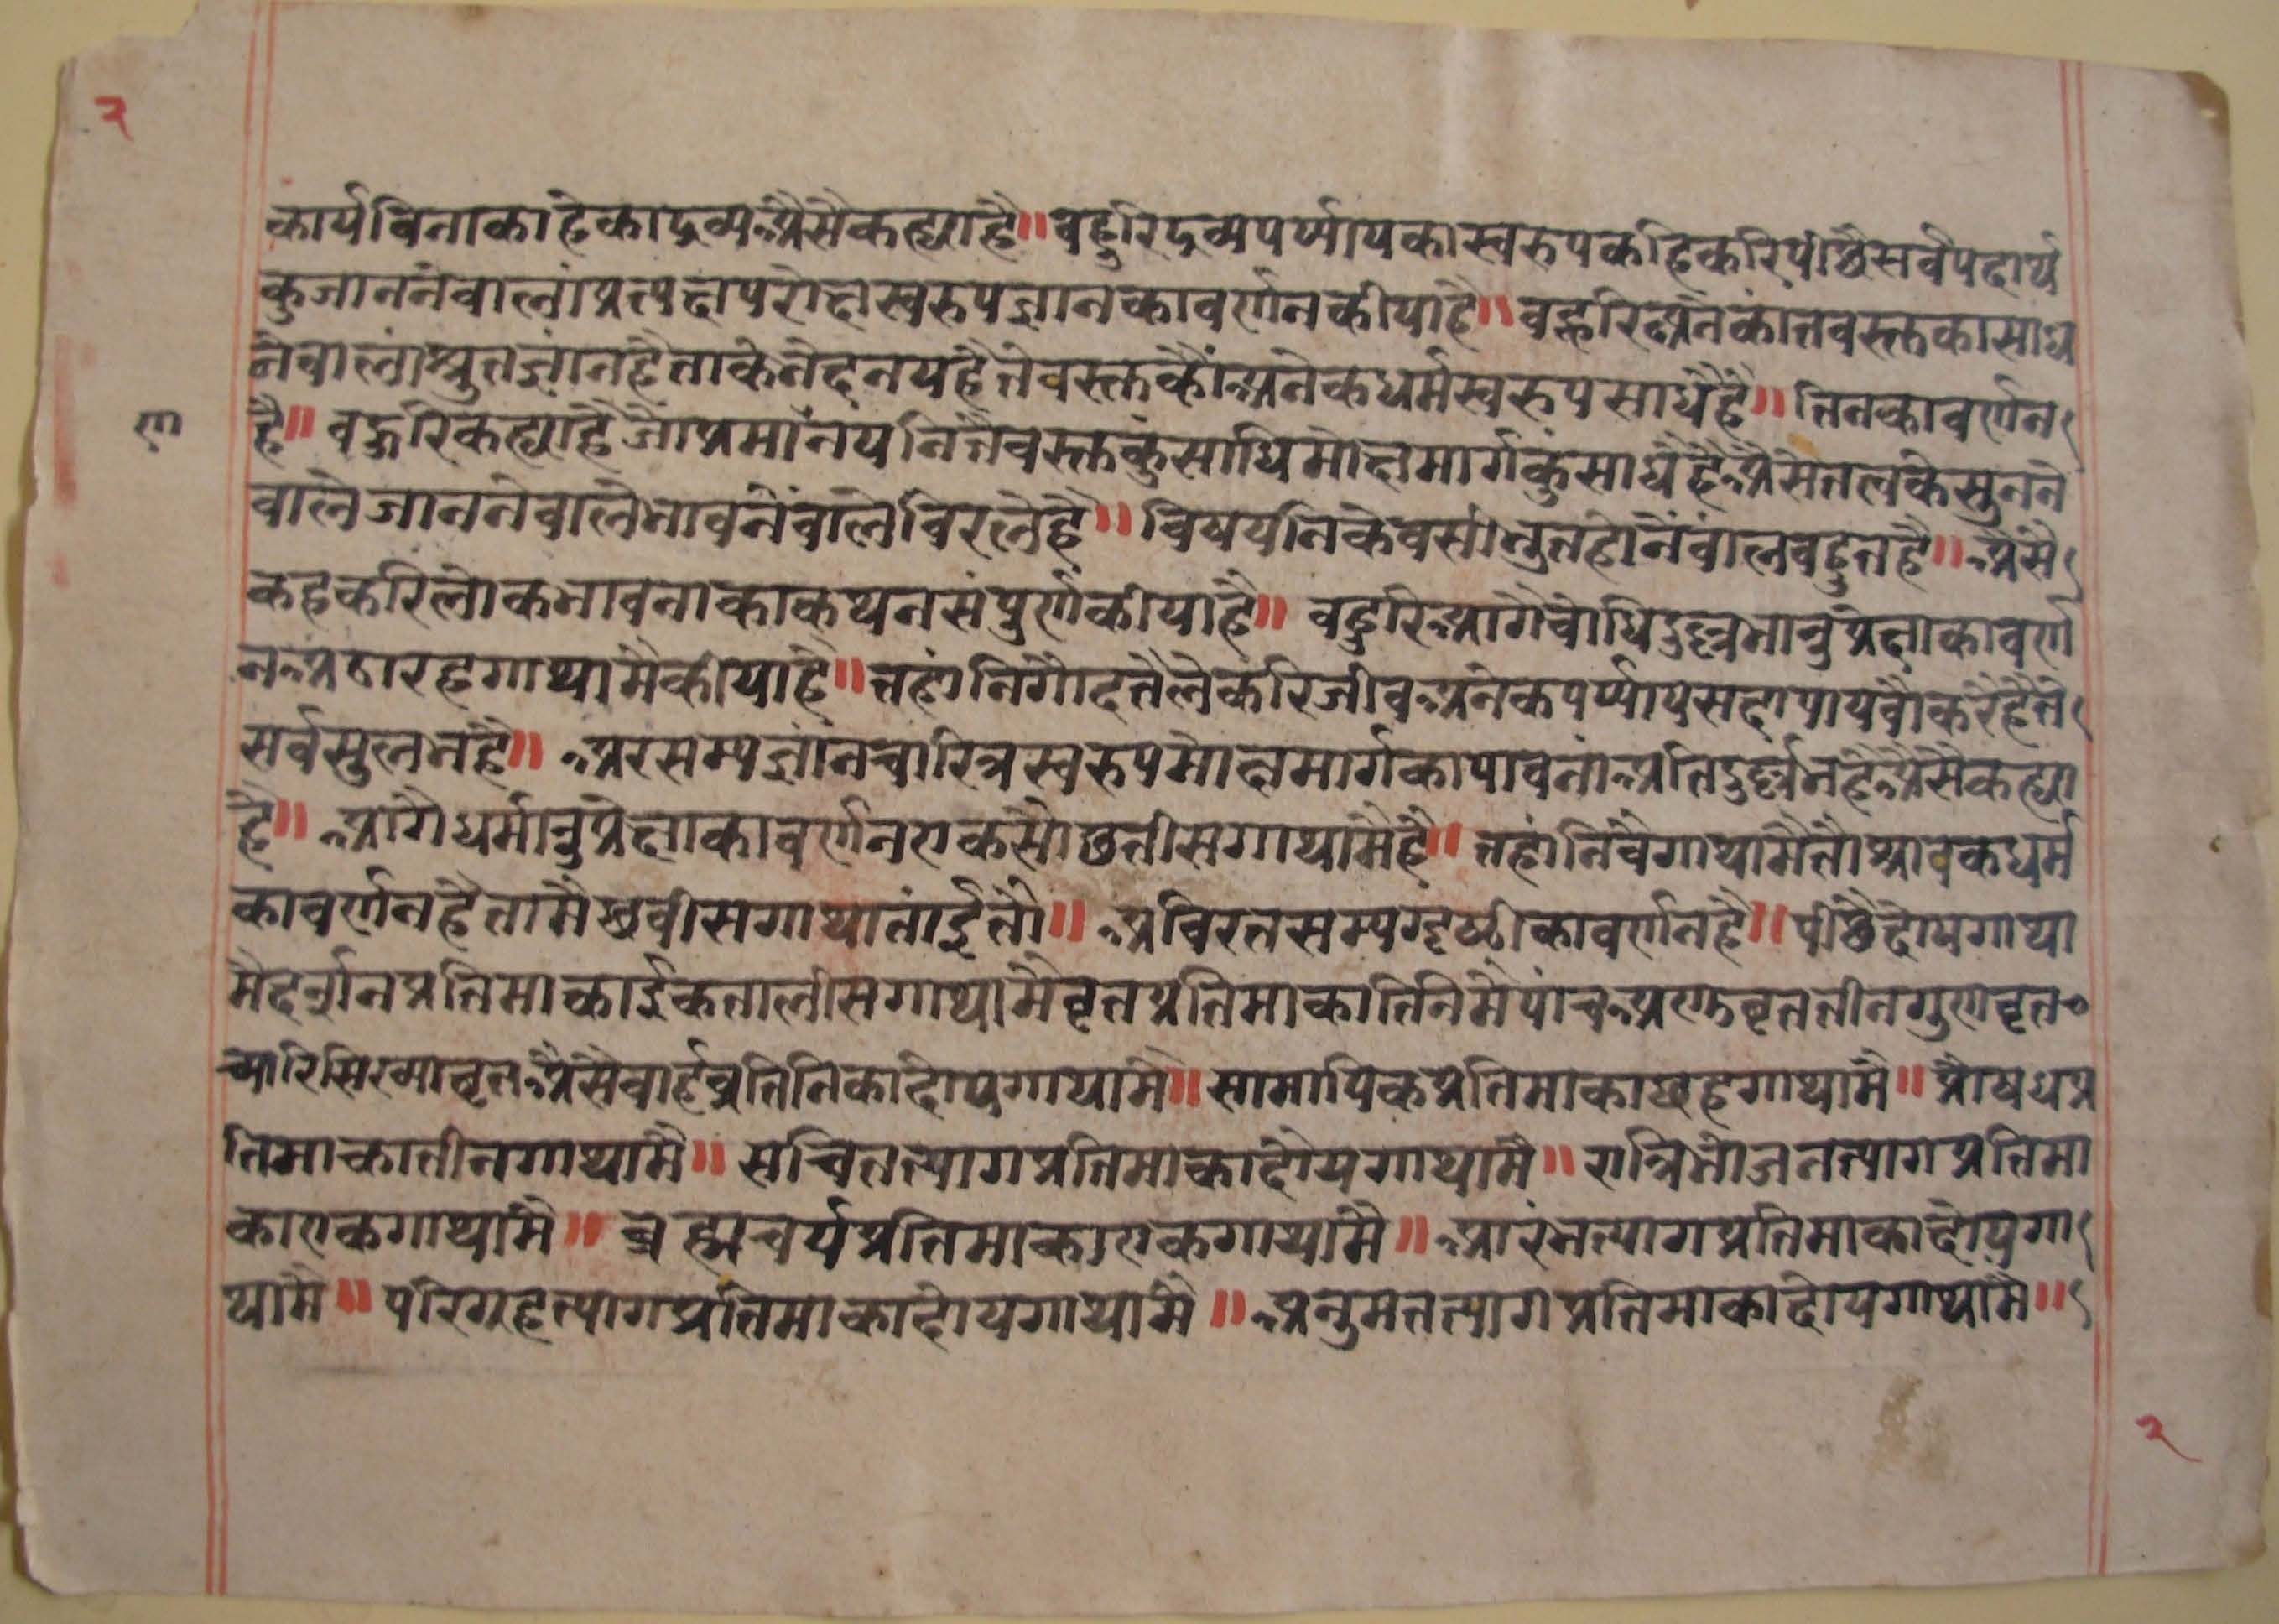 २
कार्यविनाकाहेकाद्रव्यअैसैकह्याहै॥बहुरिद्रव्यपर्य्यायकास्वरुपकहिकरिपीछैसर्वपदार्थ
कुजाननेवालांप्रत्यक्षपरोक्षस्वरुपज्ञानकावर्णनकीयाहै॥बहुरिअनेकांतवस्तुकासाध
नेवालांश्रुतज्ञांनहैताकेभेदनयहैतेवस्तुकौंअनेकधर्मस्वरुपसाधैहै॥तिनकावर्णन
है॥बहुरिकह्याहैजोप्रमांनंयनितैवस्तुकुंसाधिमोक्षमार्गकुंसाधैहैअैसेतत्वकेसुनने
ण
वालेजाननेवालेभावनेंवालेविरलेहै॥विषयनिकेवसीभुतहोनेंवालबहुतहै॥अैसै
कहकरिलोकभावनाकाकथनसंपुर्णकीयाहै॥बहुरिआगैबोधिदुल्लभानुप्रेक्षाकावर्ण
नअठारहगाथामैकीयाहै॥तहांनिगोदतैलेकरिजीवअनेकपर्य्यायसदापायवौकरैहैते
सर्वसुलभहै॥अरसम्यज्ञांनचारित्रस्वरुपमोक्षमार्गकापावनांअतिदुर्ल्लभहैअैसैकह्या
है॥आगैधर्मानुप्रेक्षाकावर्णनएकसौछतीसगाथामैहै॥तहांनिवैगाथामैतौश्रावकधर्म
कावर्णनहैतामैछवीसगाथातांईतौ॥अविरतसम्यग्दृष्टीकावर्णनहै॥पीछैदोयगाथा
मैदर्शनप्रतिमाकाईकतालीसगाथामैवृतप्रतिमाकातिनिमैपांचअणुवृततीनगुणवृत
च्यारिसिख्यावृतअैसैबार्हव्रतिनिकादोयगाथामै॥सामायिकप्रतिमाकाछहगाथामै॥प्रोषधप्र
तिमाकातीनगाथामै॥सचितत्यागप्रतिमाकादोयगाथामै॥रात्रिभोजनत्यागप्रतिमा
काएकगाथामै॥ब्रह्मचर्यप्रतिमाकाएकगाथामै॥आरंभत्यागप्रतिमाकादोयगा
थामै॥परिग्रहत्यागप्रतिमाकादोयगाथामै॥अनुमतत्यागप्रतिमाकादोयगाथामै॥
२